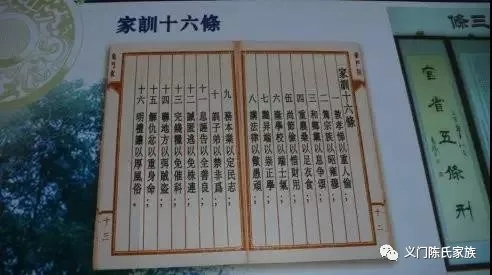 家訓十六條
三條
家訓十六條
一 敦孝悌以重人倫；
二 篤宗族以昭雍穆；
三 和鄉黨以息爭頌；
四 重農桑以足衣食；
伍 尚節儉以惜財用；
六 隆學校以端士氣；
七 黜異端以崇正學；
八 講法律以儆愚頑；
十二
九 務本業以定民志；
十 訓子弟以禁非爲；
十一 息誣告以全善良；
十二 誡匿逃以免株連；
十三 完錢糧以免催科；
十四 聯地方以弭賊盜；
十五 解仇忿以重身命；
十六 明禮讓以厚風俗；
十三
省五條刑
义门陈氏家族